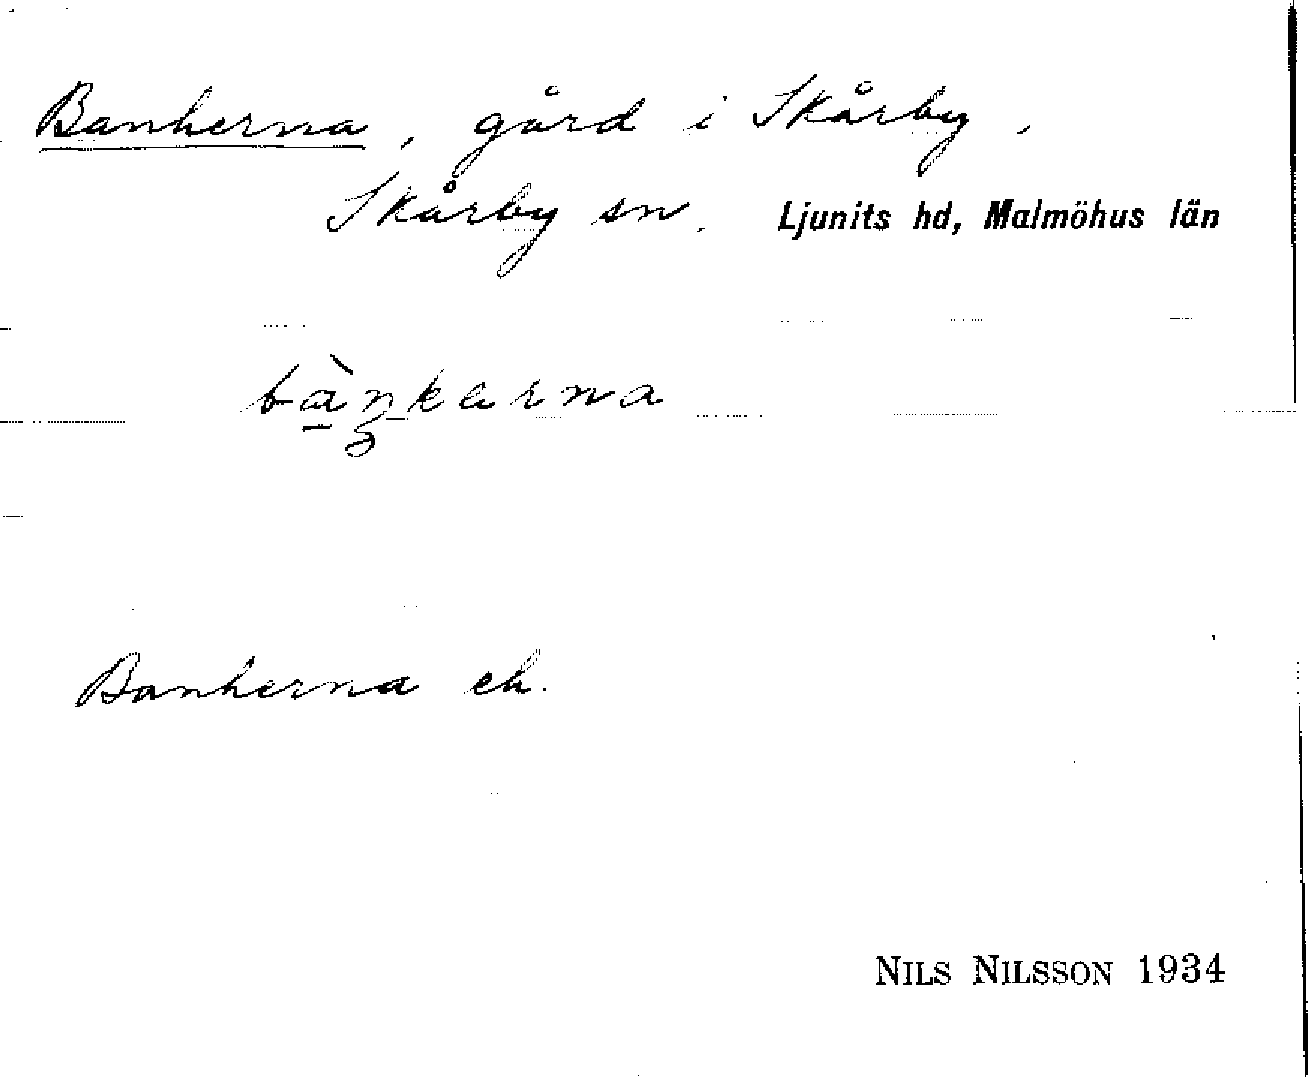 Bankerna, gård i Skårby,
Skårby sn. Ljunits hd, Malmöhus län
bàŋkarna
Bankerna ek.
NILS NILSSON 1934